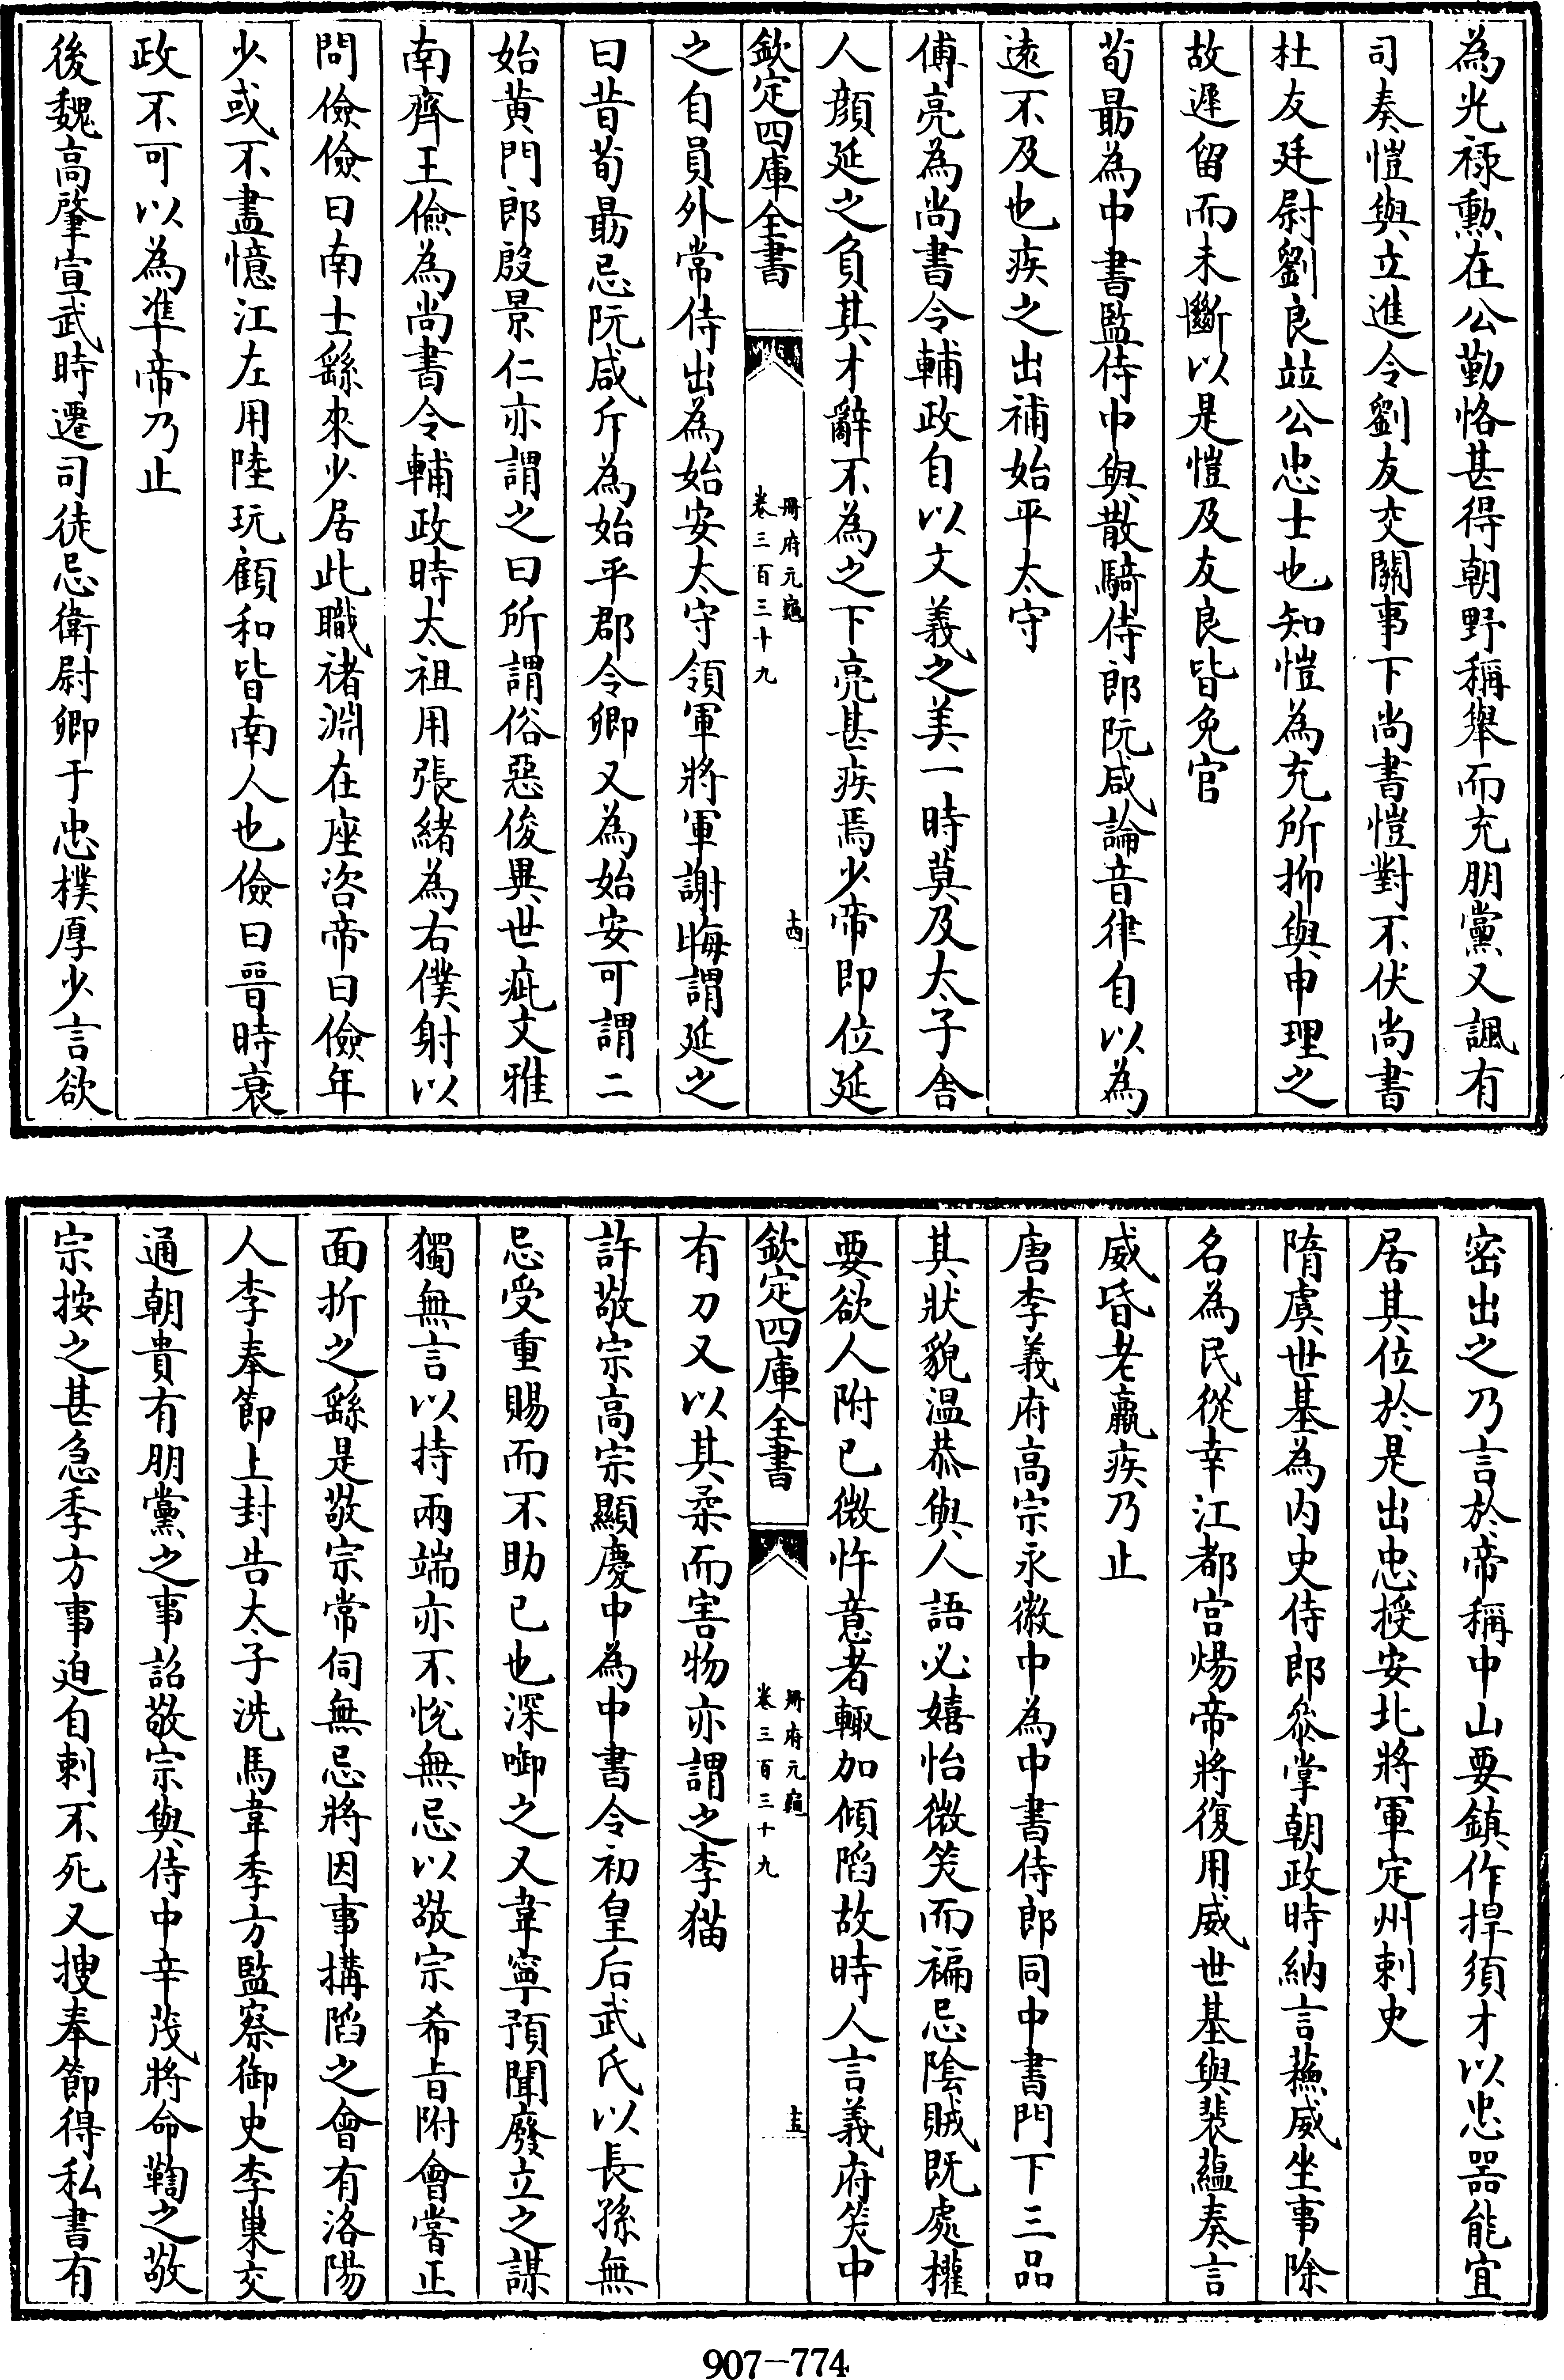 為光祿勲在公勤恪甚得朝野稱舉而充朋黨又諷有
司奏愷與立進令劉友交關事下尚書愷對不伏尚書
杜友廷尉劉良竝公忠士也知愷為充所抑與申理之
故遲留而未斷以是愷及友良皆免官
荀勗為中書監侍中與散騎侍郎阮咸論音律自以為
遠不及也疾之出補始平太守
傅亮為尚書令輔政自以文義之美一時莫及太子舍
人顔延之負其才辭不為之下亮甚疾焉少帝即位延
欽定四庫全書
冊府元龜
卷三百三十九
十四
之自員外常侍出為始安太守領軍將軍謝晦謂延之
曰昔荀勗忌阮咸斥為始平郡令卿又為始安可謂二
始黄門郎殷景仁亦謂之曰所謂俗惡俊異世疵文雅
南齊王儉為尚書令輔政時太祖用張緒為右僕射以
問儉儉曰南士繇來少居此職禇淵在座咨帝曰儉年
少或不盡憶江左用陸玩顧和皆南人也儉曰晉時衰
政不可以為準帝乃止
後魏高肇宣武時遷司徒忌衛尉卿于忠樸厚少言欲
密出之乃言於帝稱中山要鎮作捍須才以忠器能宜
居其位於是出忠授安北將軍定州刺史
隋虞世基為内史侍郎叅掌朝政時納言蘇威坐事除
名為民從幸江都宮煬帝將復用威世基與裴蘊奏言
威昏老羸疾乃止
唐李義府高宗永徽中為中書侍郎同中書門下三品
其狀貌温恭與人語必嬉怡微笑而褊忌隂賊既處權
要欲人附已微忤意者輒加傾陷故時人言義府笑中
欽定四庫全書
冊府元龜
卷三百三十九
十五
有刀又以其柔而害物亦謂之李猫
許敬宗高宗顯慶中為中書令初皇后武氏以長孫無
忌受重賜而不助已也深啣之又韋寧預聞廢立之謀
獨無言以持兩端亦不悅無忌以敬宗希旨附會嘗正
面折之繇是敬宗常伺無忌將因事搆陷之會有洛陽
人李奉節上封告太子洗馬韋季方監察御史李巢交
通朝貴有朋黨之事詔敬宗與侍中辛茂將命鞫之敬
宗按之甚急季方事迫自刺不死又搜奉節得私書有
907-774